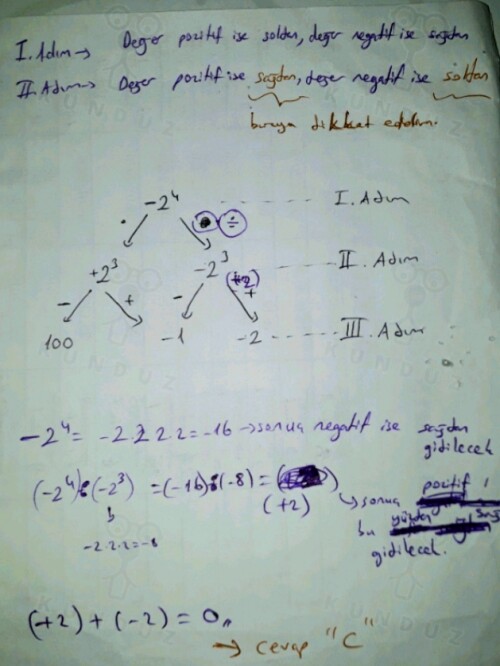 I. Adım → Değer pozitif ise soldan, değer negatif ise sağdan
II. Adım → Değer pozitif ise sağdan, değer negatif ise soldan
buraya dikkat edelim.
-2⁴ I. Adım
· ÷
+2³ -2³ II. Adım
- + - +
100 -1 -2 III. Adım
-2⁴ = -2.2.2.2 = -16 → sonuç negatif ise sağdan
gidilecek
(-2⁴) : (-2³) = (-16) : (-8) =
(+2) → sonuç pozitif
-2.2.2 = -8
bu
gidilecek.
(+2) + (-2) = 0,,
→ cevap "C"
KUNDUZ